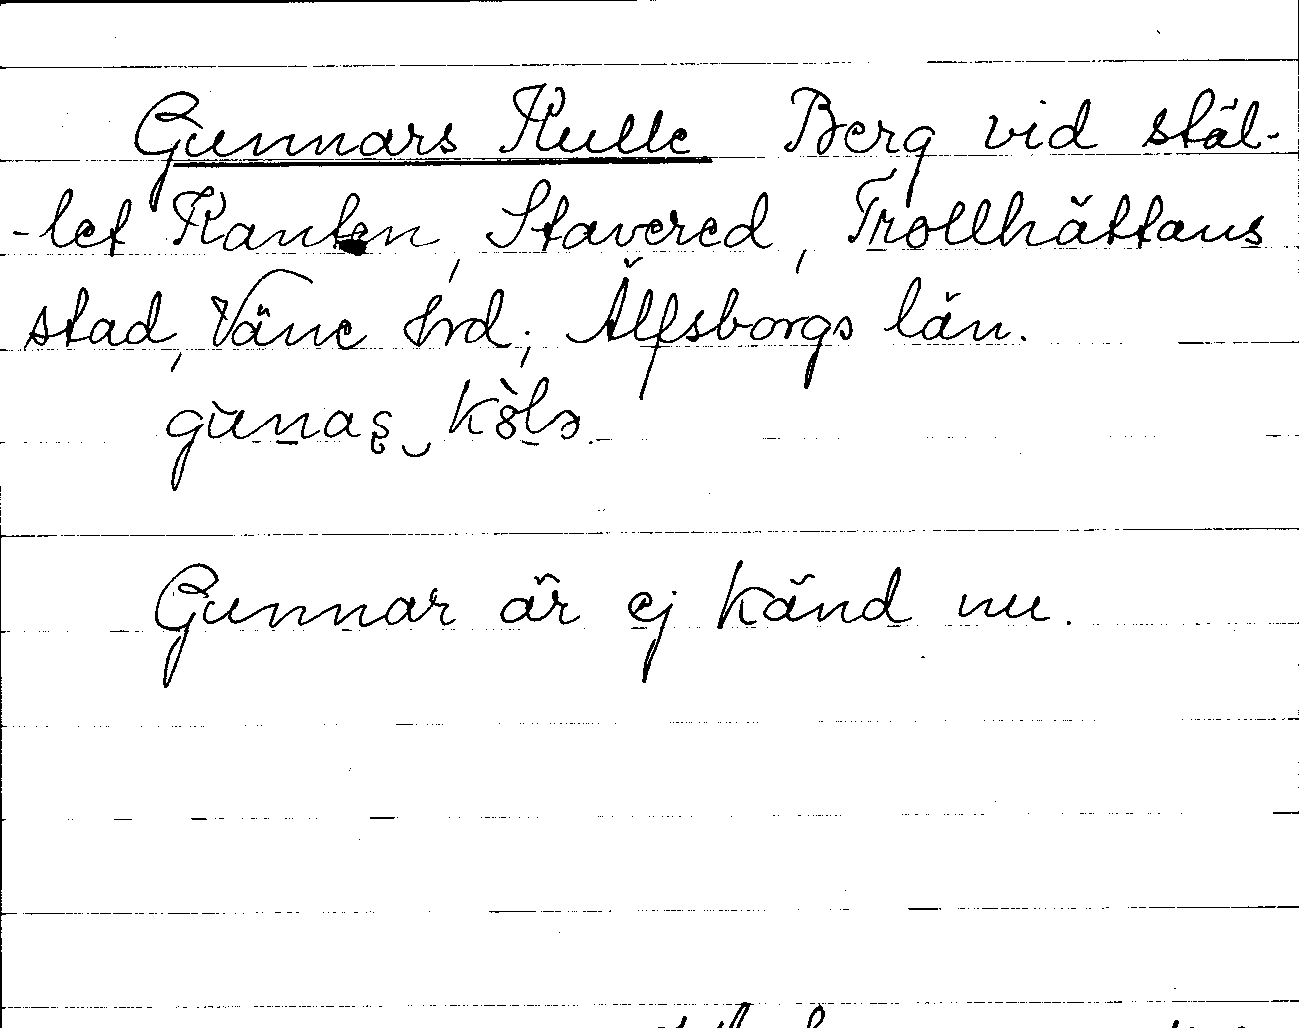 Gunnars Kulle Berg vid stäl-
-let Kanten, Stavered, Trollhättans
stad, Väne hrd; Älfsborgs län.
gùnas̡‿kòlə.
Gunnar är ej känd nu.